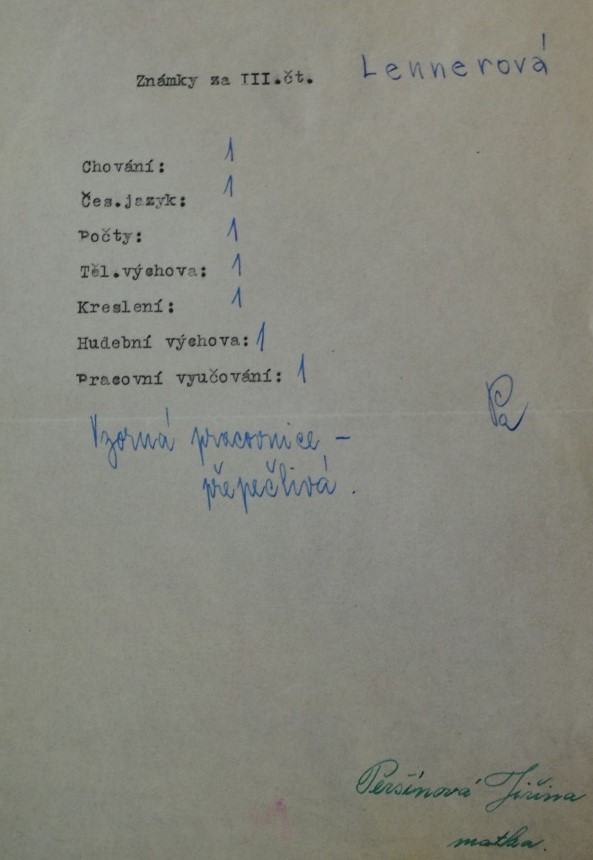 Známky za III.čt. Lennerová
Chování: 1
Čes.jazyk: 1
Počty: 1
Těl.výchova: 1
Kreslení: 1
Hudební výchova: 1
Pracovní vyučování: 1
Pa
Vzorná pracovnice –
přepečlivá.
Peršínová Jiřina
matka.